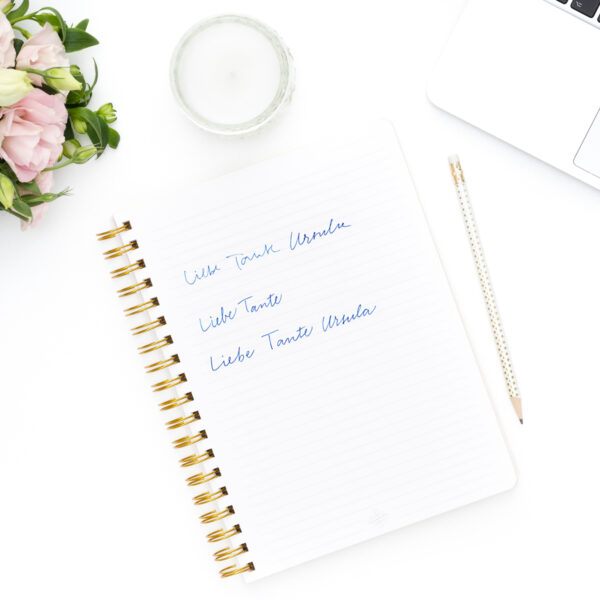 Liebe Tante Ursula
Liebe Tante
Liebe Tante Ursula